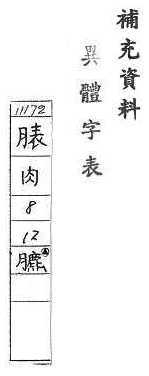 補充資料
異體字表
11172
脿
肉
8
12
臕